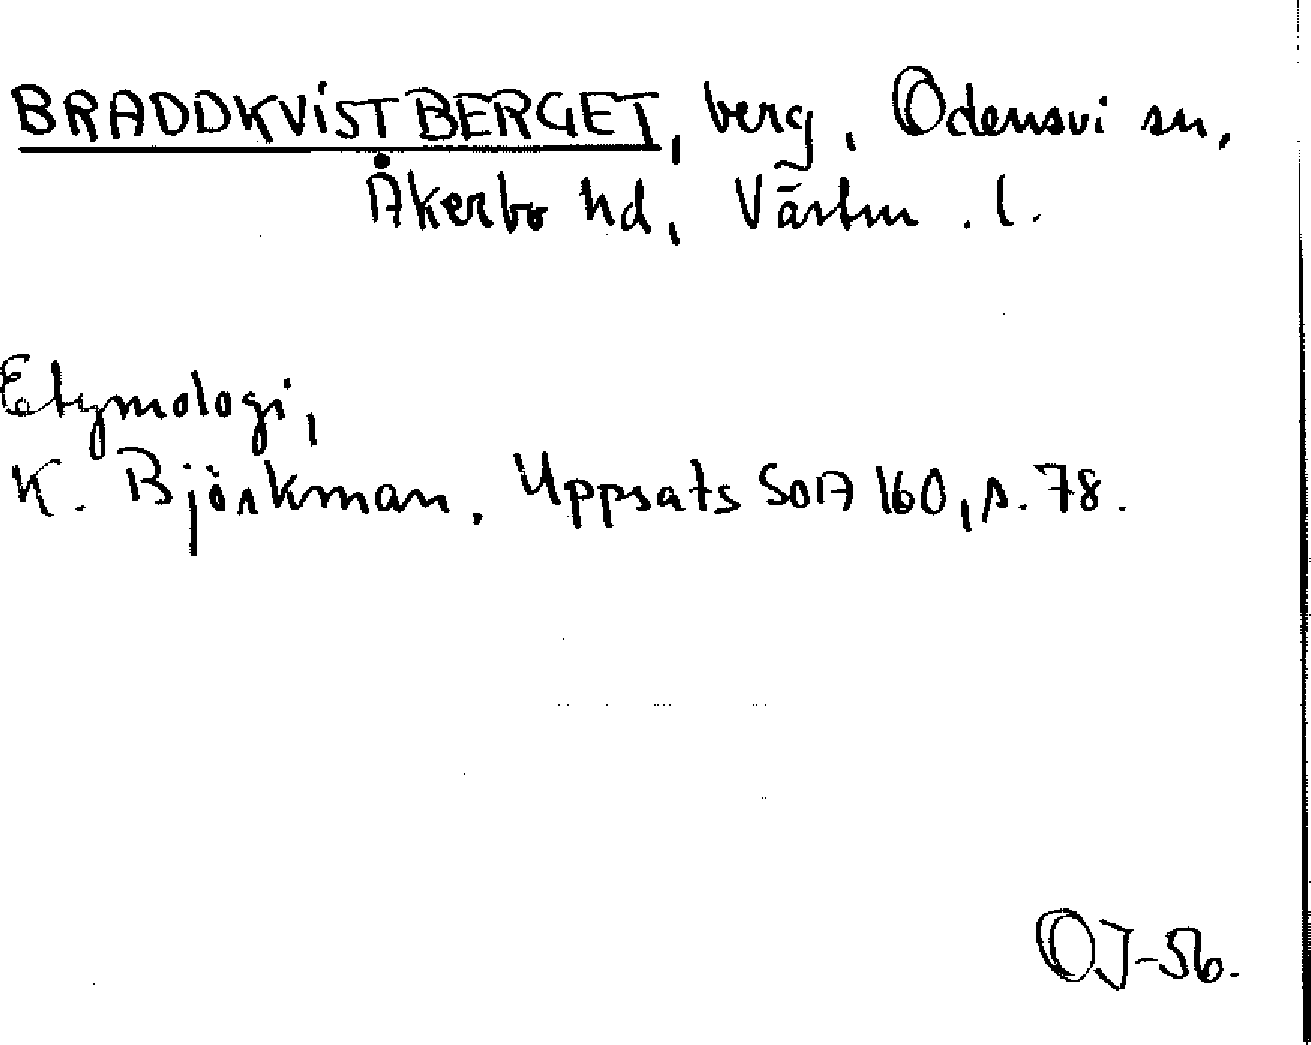 BRADDKVISTBERGET, berg, Odensvi sn,
Åkerbo hd, Västm. l.
Etymologi,
K. Björkman. Uppsats SOA 160, s. 78.
OJ-56.